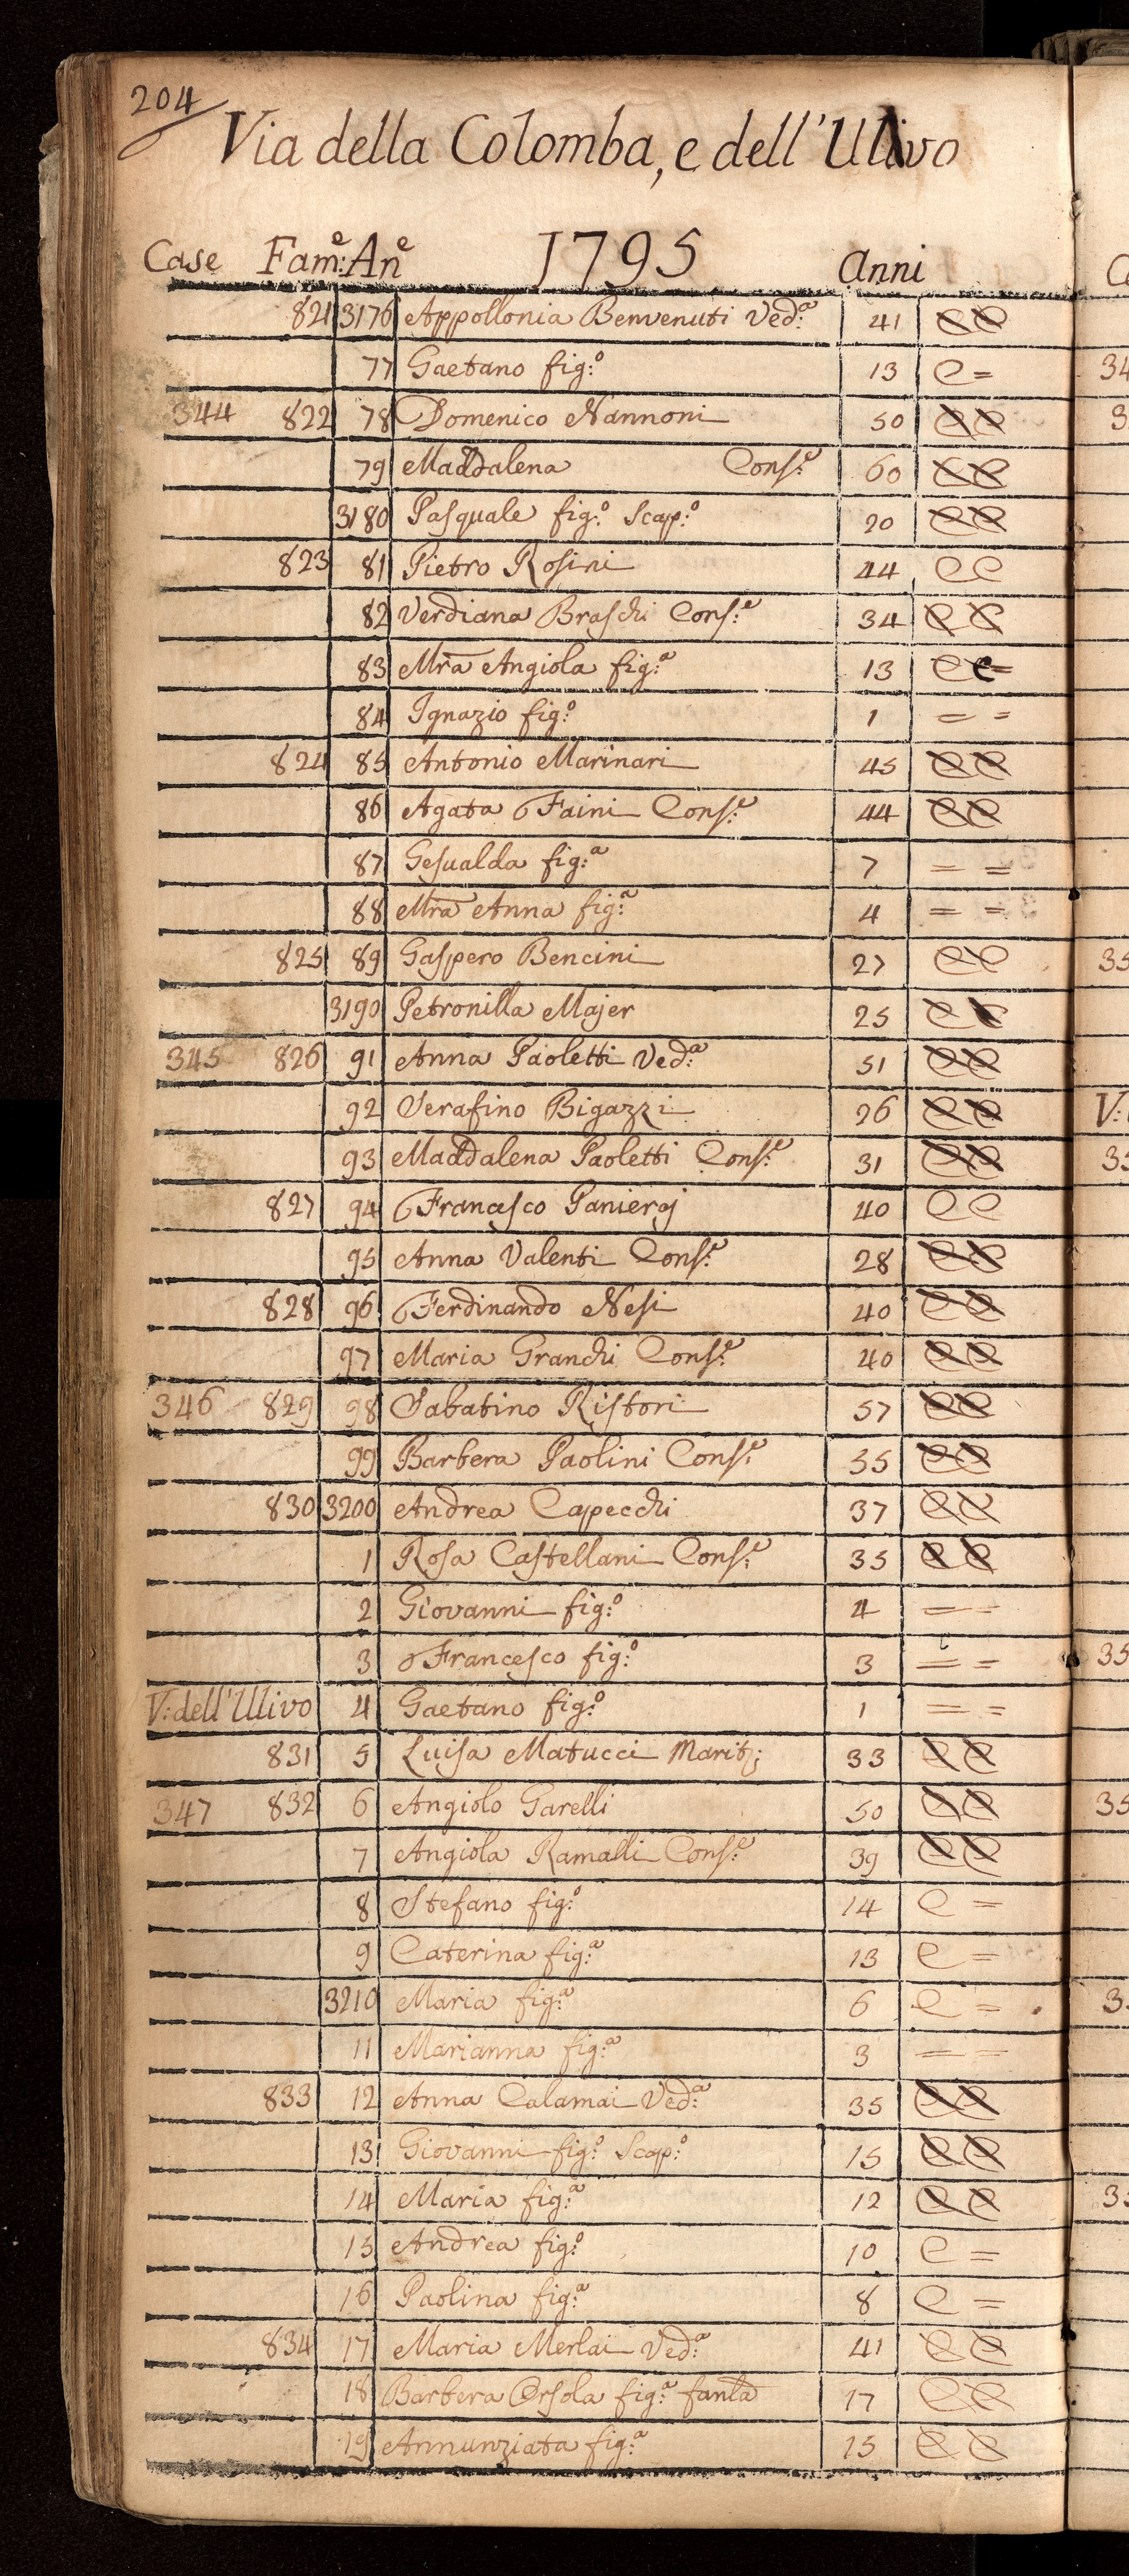 204
Via della Colomba, e dell'Ulivo
Case Fam:e An:e 1795 Anni
821 3176 Appollonia Benvenuti Ved:a 41 C C
77 Gaetano fig:o 13 C =
344 822 78 Domenico Nannoni 50 C C
79 Maddalena Cons:e 60 C C
3180 Pasquale fig:o Scap:o 20 C C
823 81 Pietro Rosini 44 C C
82 Verdiana Braschi Cons:e 34 C C
83 Mra Angiola fig:a 13 C C=
84 Ignazio fig:o 1 = =
824 85 Antonio Marinari 45 C C
86 Agata Faini Cons:e 44 C C
87 Gesualda fig:a 7 = =
88 Mra Anna fig:a 4 = =
825 89 Gaspero Bencini 27 C C
3190 Petronilla Majer 25 C C
345 826 91 Anna Paoletti Ved:a 51 C C
92 Serafino Bigazzi 26 C C
93 Maddalena Paoletti Cons:e 31 C C
827 94 Francesco Panierj 40 C C
95 Anna Valenti Cons:e 28 C C
828 96 Ferdinando Nesi 40 C C
97 Maria Granchi Cons:e 40 C C
346 829 98 Sabatino Ristori 57 C C
99 Barbera Paolini Cons:e 35 C C
830 3200 Andrea Capecchi 37 C C
1 Rosa Castellani Cons:e 35 C C
2 Giovanni fig:o 4 = =
3 Francesco fig:o 3 = =
V: dell'Ulivo 4 Gaetano fig:o 1 = =
831 5 Luisa Matucci Marit: 33 C C
347 832 6 Angiolo Garelli 50 C C
7 Angiola Ramalli Cons:e 39 C C
8 Stefano fig:o 14 C =
9 Caterina fig:a 13 C =
3210 Maria fig:a 6 C =
11 Marianna fig:a 3 = =
833 12 Anna Calamai Ved:a 35 C C
13 Giovanni fig:o Scap:o 15 C C
14 Maria fig:a 12 C C
15 Andrea fig:o 10 C =
16 Paolina fig:a 8 C =
834 17 Maria Merlai Ved:a 41 C C
18 Barbera Orsola fig:a fanla 17 C C
19 Annunziata fig:a 15 C C